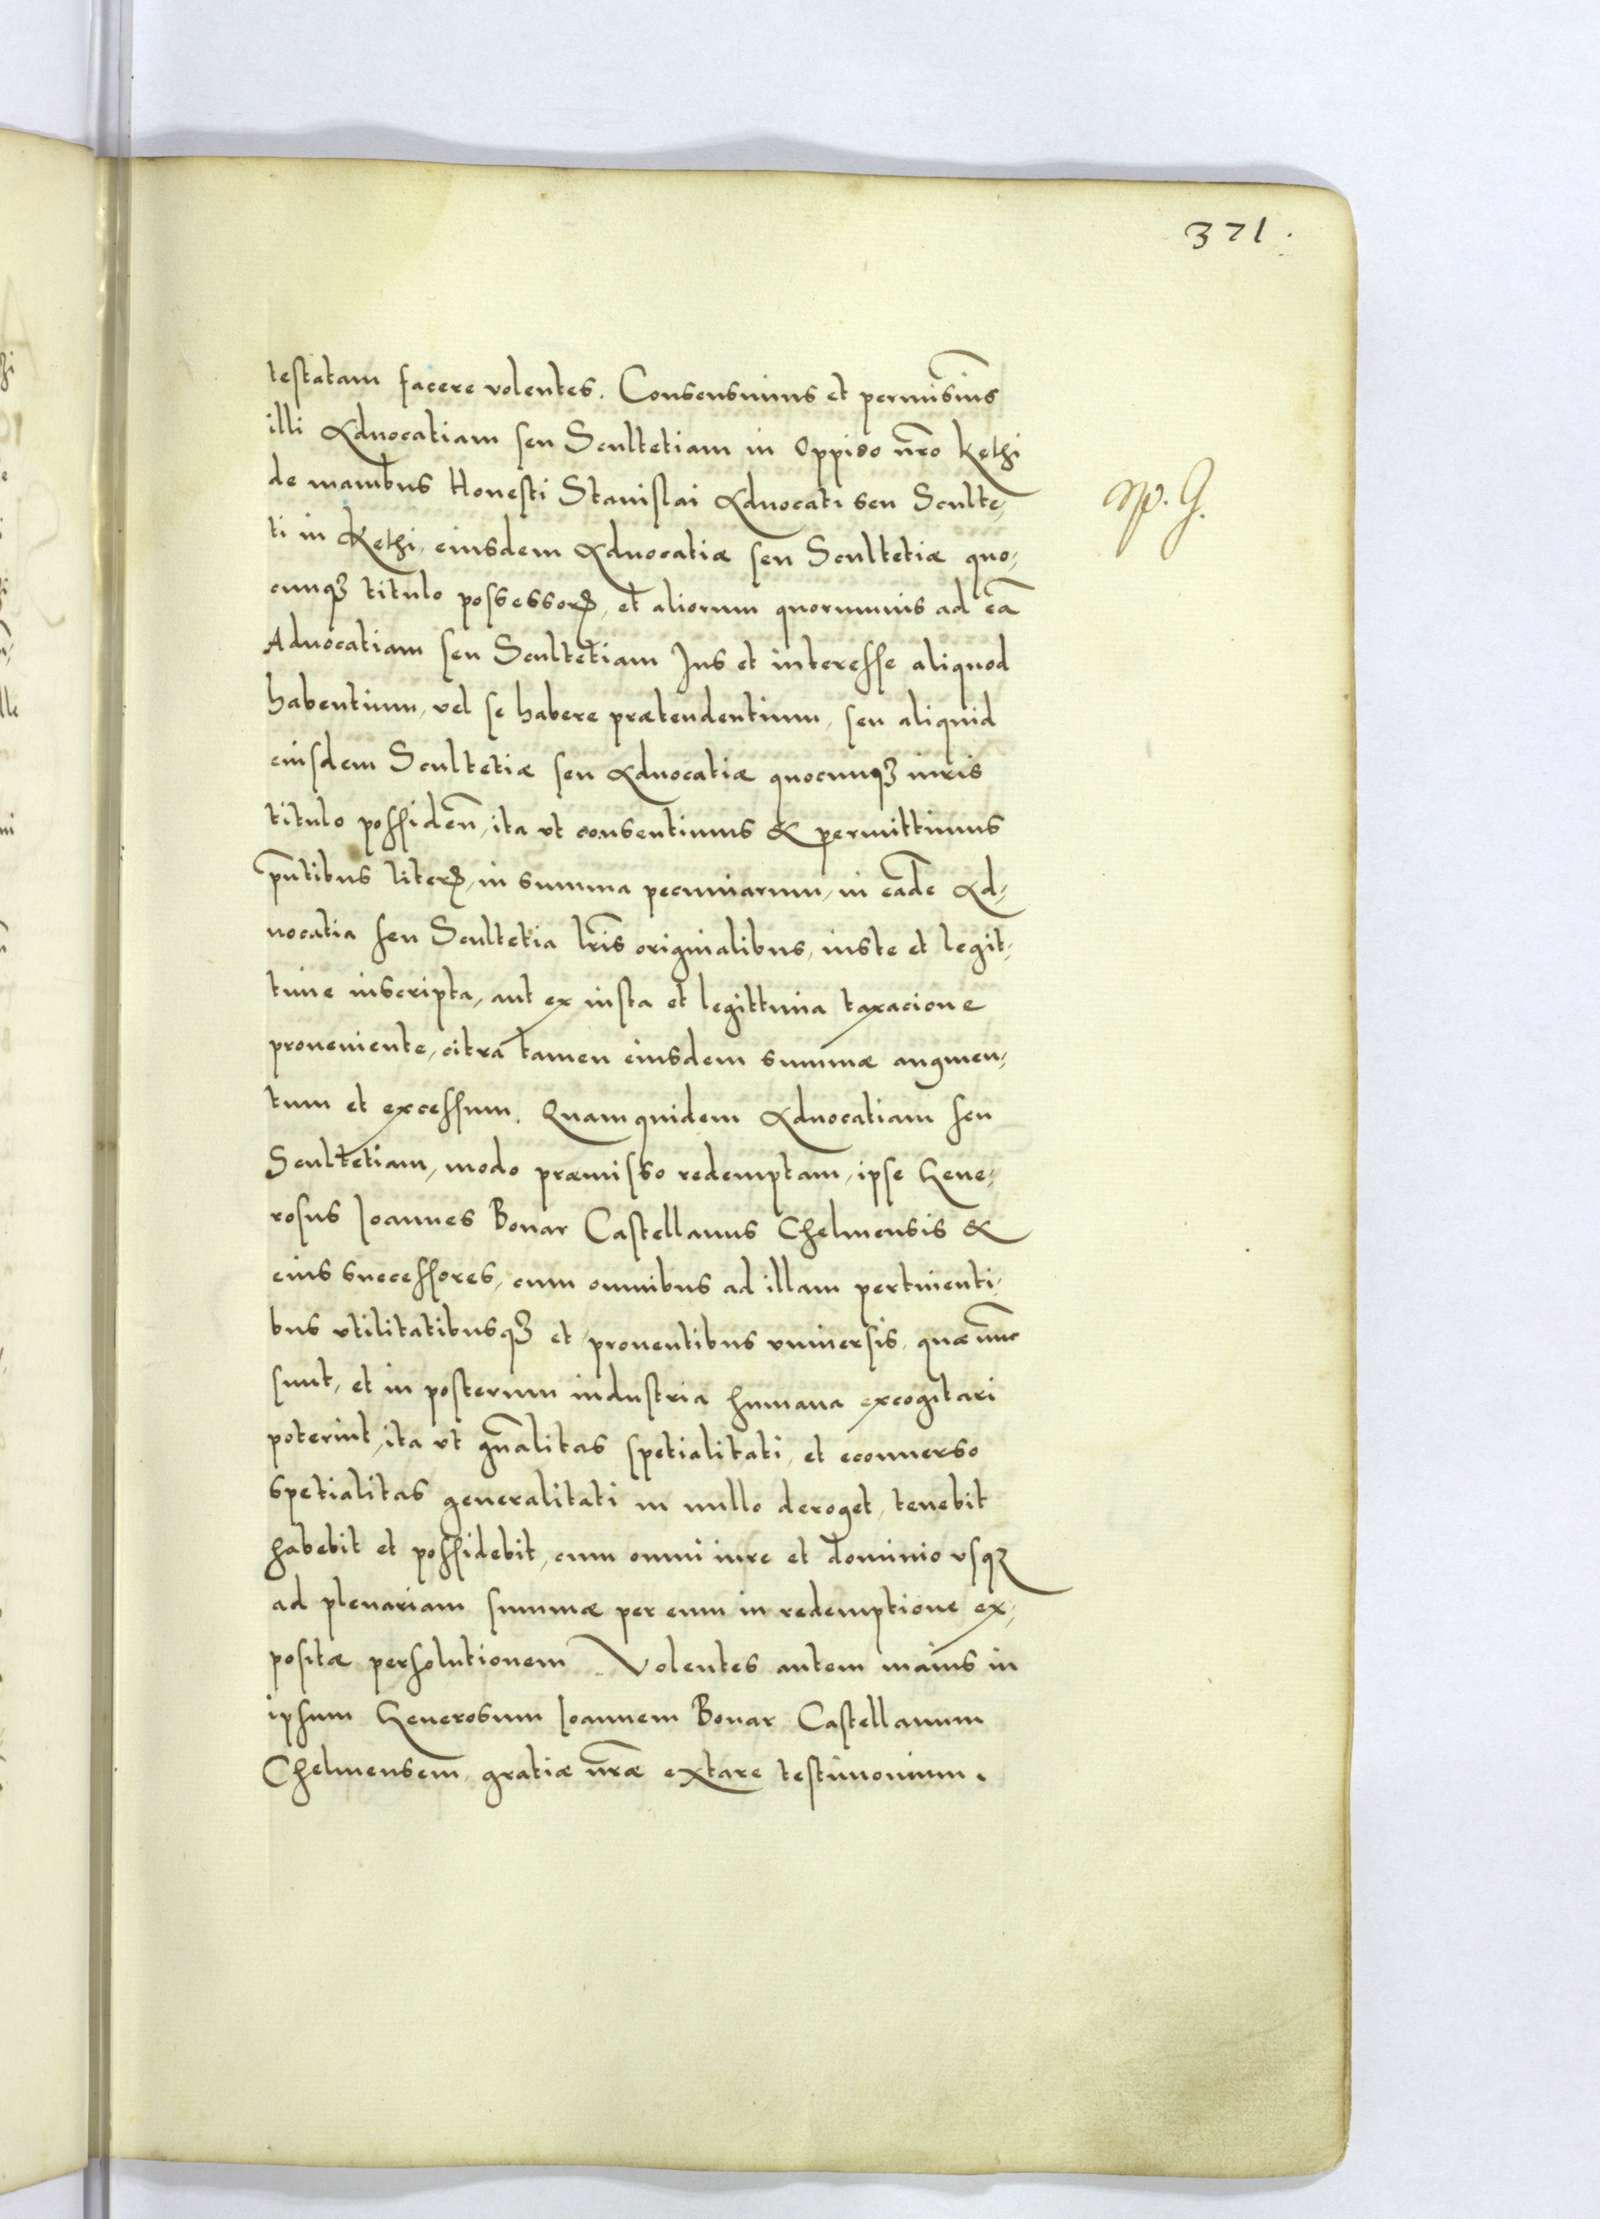 371.
testatam facere volentes. Consensimus et permisim̃us
illi Advocatiam seu Scultetiam in Oppido nr̃o Kethi
de manibus Honesti Stanislai Advocati seu Sculte,
ti in Kethi, eiusdem Advocatiæ seu Scultetiæ quo,
cunqꝫ titulo possessorꝫ, et aliorum quorumuis ad eã
Aduocatiam seu Scultetiam Jus et interesse aliquod
habentium, vel se habere prætendentium, seu aliquid
eiusdem Scultetiæ seu Advocatiæ quocunqꝫ iuris
titulo possideñ, ita vt consentimus & permittimus
pñtibus literꝫ, in summa pecuniarum, in eadẽ Ad,
uocatia seu Scultetia lr̃is originalibus, iuste et legit,
time inscripta, aut ex iusta et legittima taxacione
proueniente, citra tamen eiusdem summæ augmen,
tum et excessum. Quamquidem Advocatiam seu
Scultetiam, modo præmisso redemptam, ipse Gene,
rosus Joannes Bonar Castellanus Chelmensis &
eius successores, cum omnibus ad illam pertinenti,
bus vtilitatibusqꝫ et prouentibus vniuersis, quæ nũc
sunt, et in posterum industria humana excogitari
poterint, ita vt gñalitas spetialitati, et econuerso
spetialitas generalitati in nullo deroget, tenebit
habebit et possidebit, cum omni iure et dominio vsqꝫ
ad plenariam summæ per eum in redemptione ex,
positæ persolutionem. Volentes autem maius in
ipsum Generosum Joannem Bonar Castellanum
Chelmensem, gratiæ nr̃æ extare testimonium.